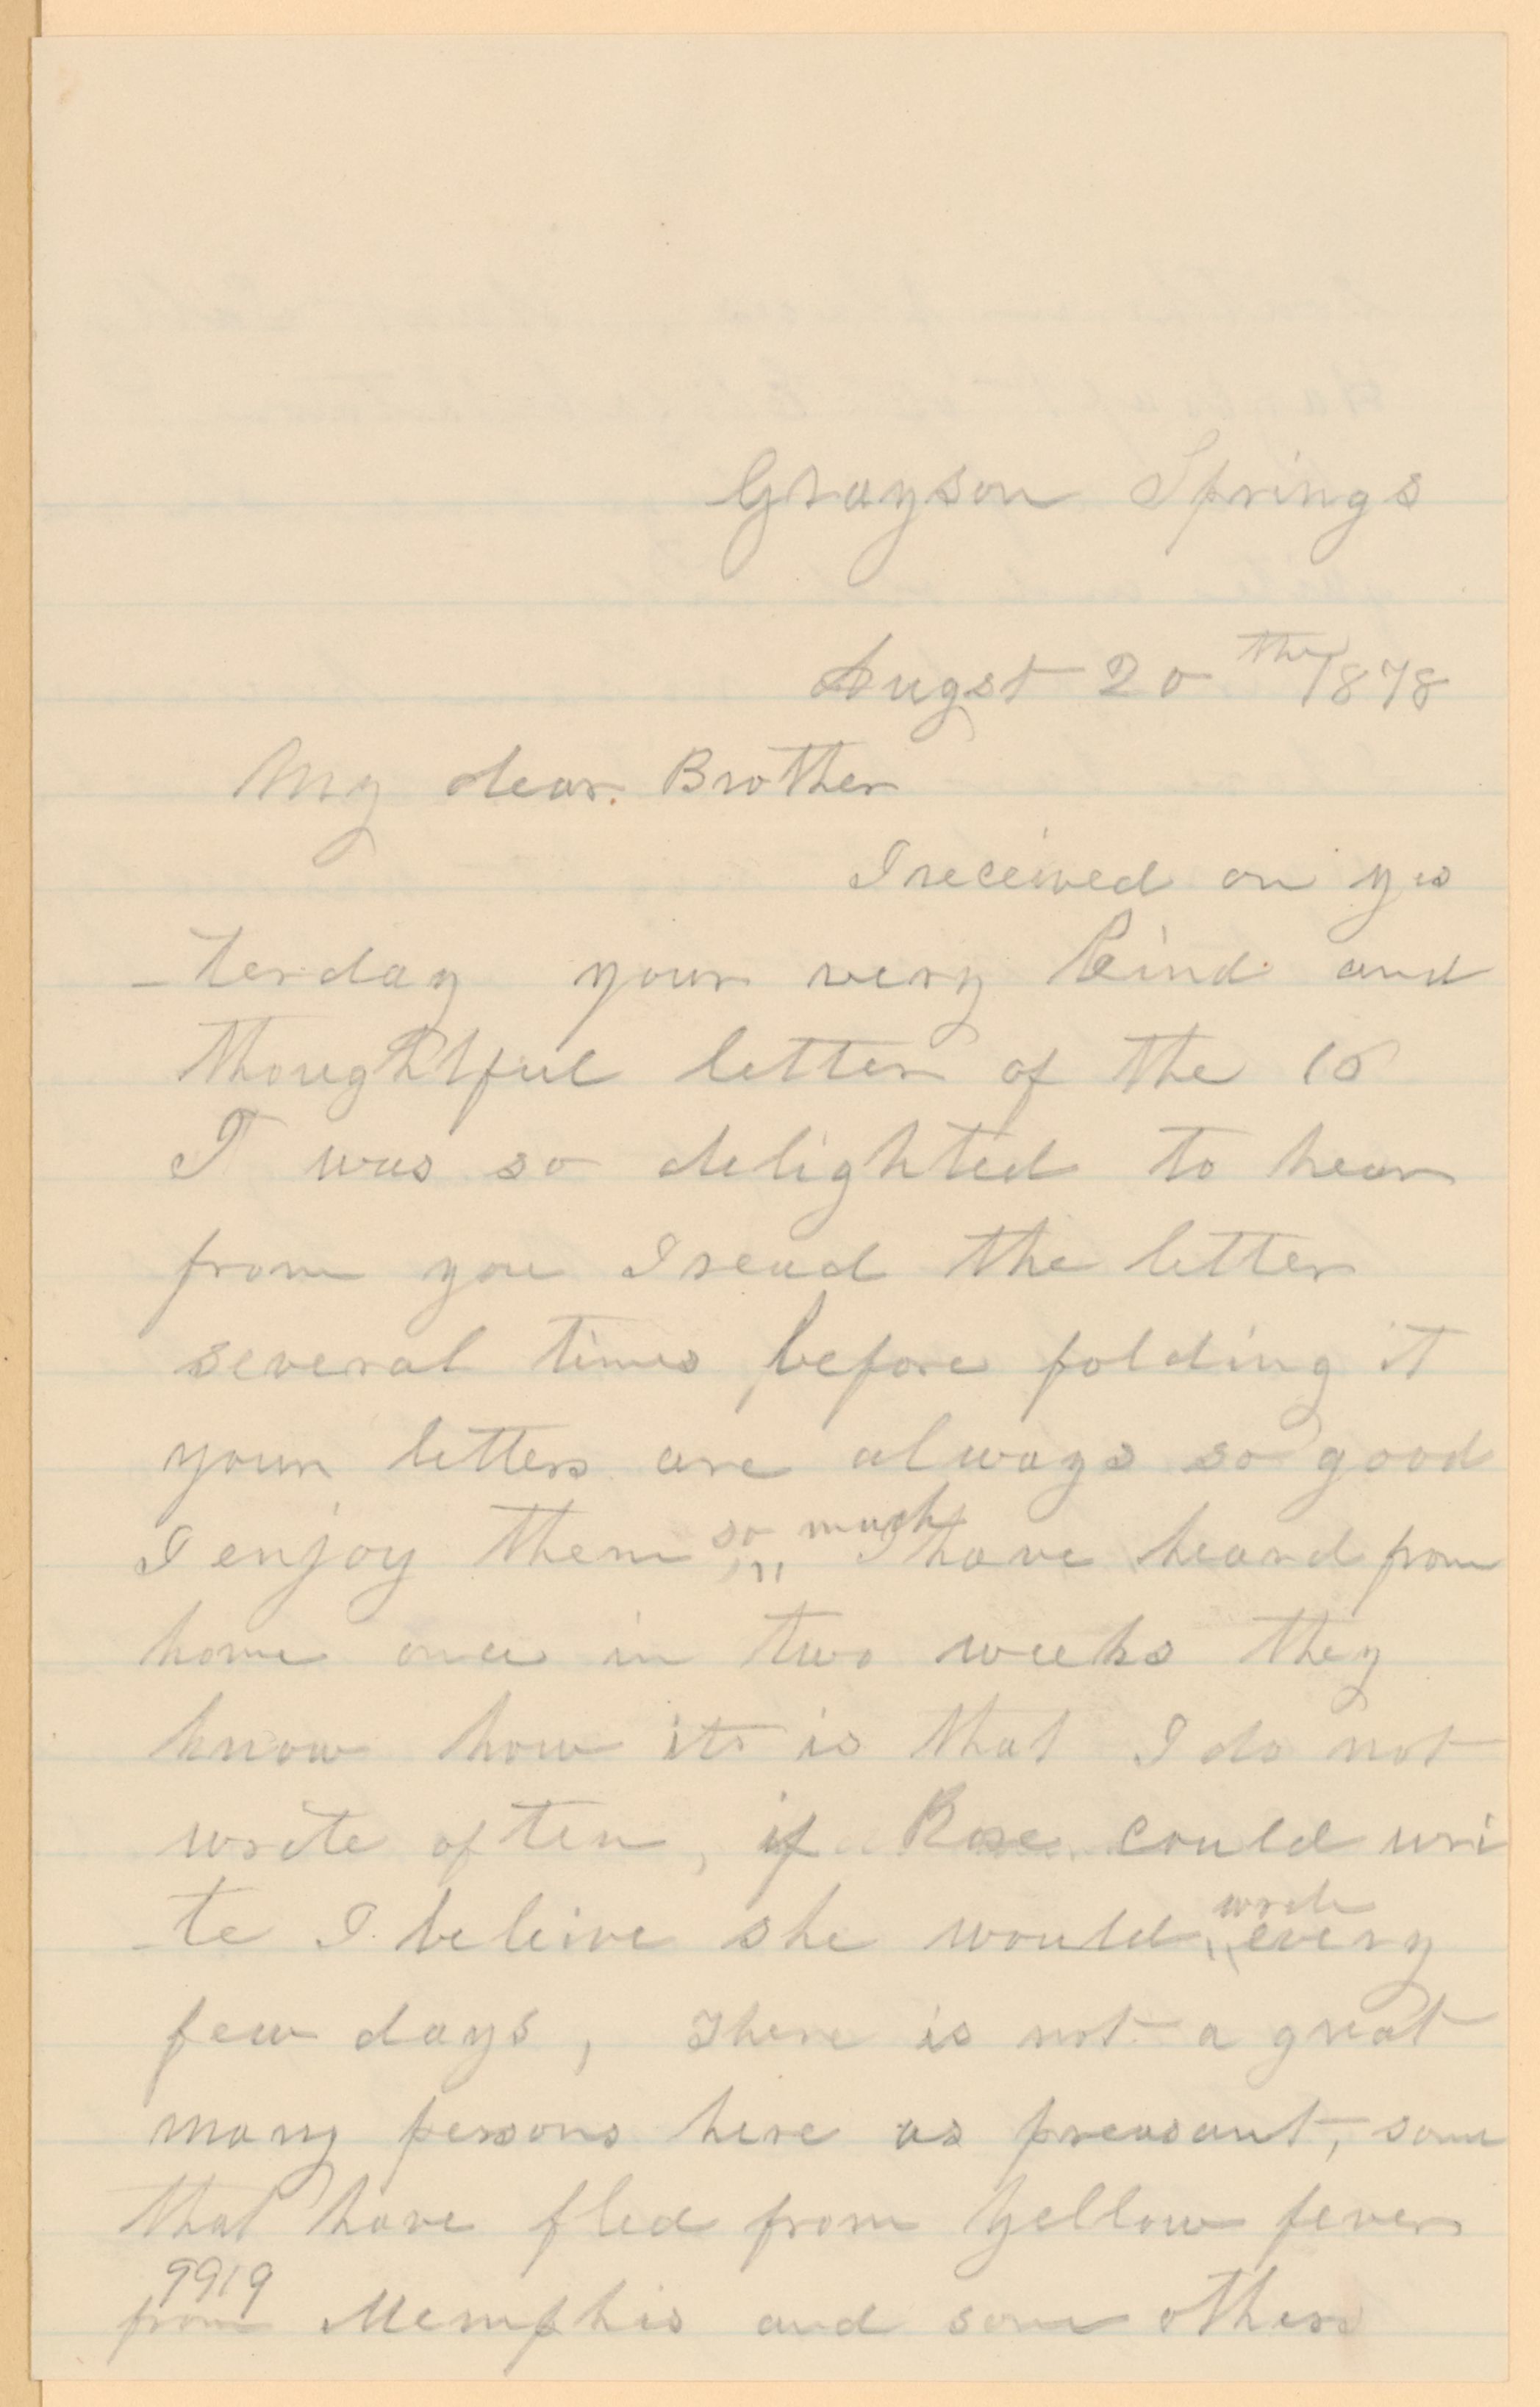 Grayson Springs
Augst 20th 1878
My dear Brother
I received on yes
-terday your very kind and
thoughtful letter of the 16
I was so delighted to hear
from you I read the letter
several times before folding it
your letters are always so good
I enjoy them so much I have heard from
home once in two weeks they
know how its is that I do not
write often, if Rose could wri
-te I beleive she would write every
few days, There is not a great
many persons here as preasant, some
that have fled from Yellow fever
9919
from Memphis and some others